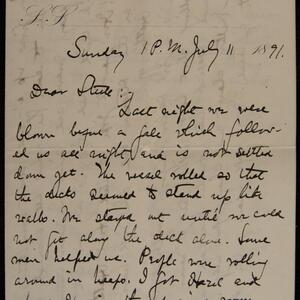 L.P.
Sunday 1 P.M. July 11 1891.
Dear Steele:-
Last night we were
blown begun a gale which follow-
ed us all night, and is not settled
down yet. The vessel rolled so that
the decks seemed to stand up like
walls. We stayed out until we could
not get along the deck alone. Some
men helped us. People were rolling
around in heaps. I got Hazel and